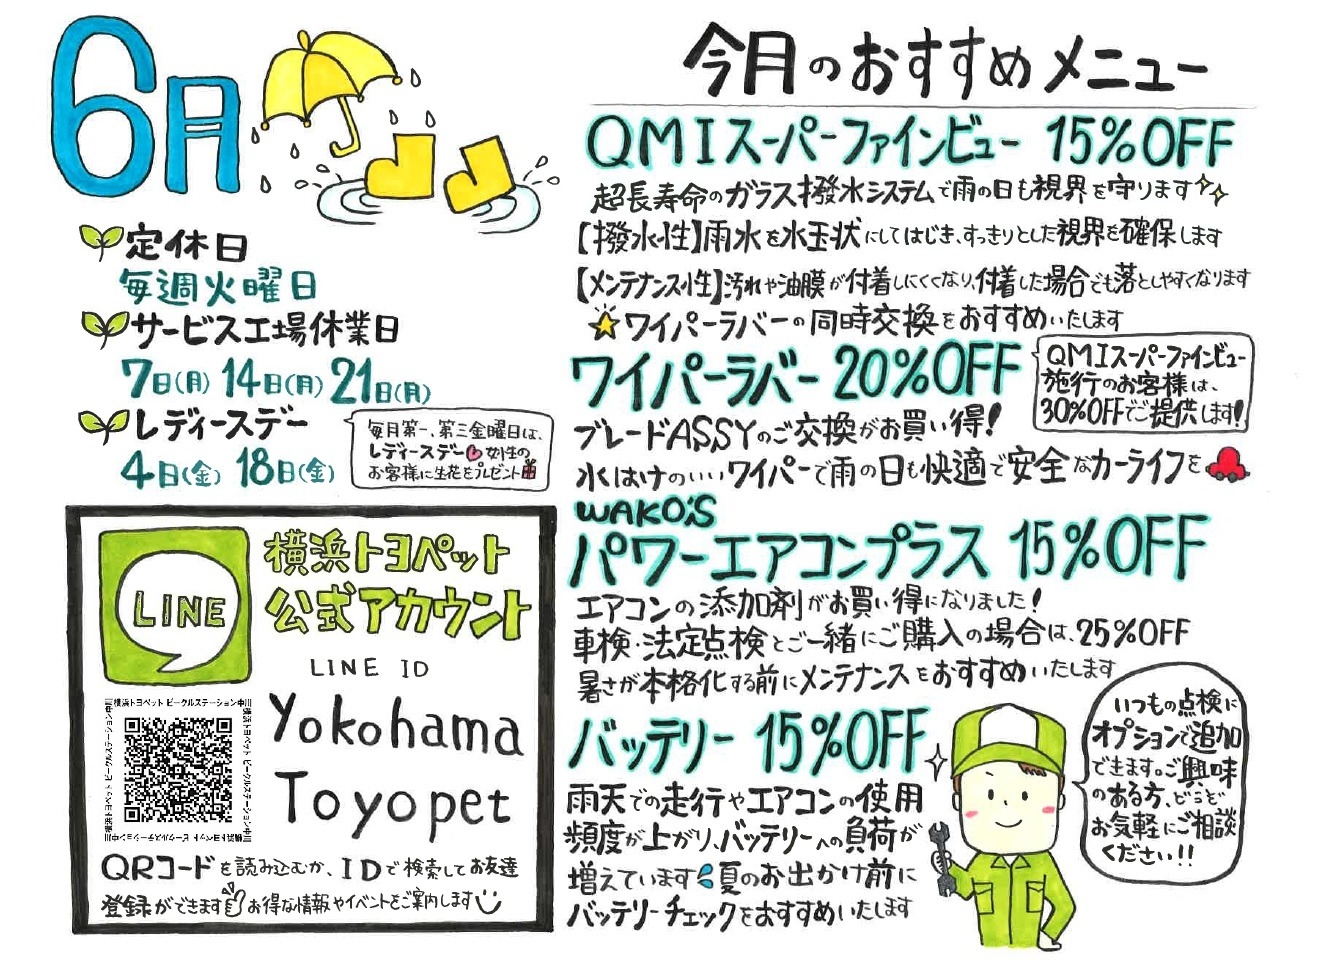 6月
定休日
毎週火曜日
サービス工場休業日
7日(月) 14日(月) 21日(月)
レディースデー
4日(金) 18日(金)
毎月第一、第三金曜日は、
レディースデー 女性の
お客様に生花をプレゼント
LINE
横浜トヨペット
公式アカウント
LINE ID
Yokohama
Toyopet
横浜トヨペット ビークルステーション中川
横浜トヨペット ビークルステーション中川
横浜トヨペット ビークルステーション中川
横浜トヨペット ビークルステーション中川
QRコードを読み込むか、IDで検索してお友達
登録ができます お得な情報やイベントをご案内します
今月のおすすめメニュー
QMIスーパーファインビュー 15%OFF
超長寿命のガラス撥水システムで雨の日も視界を守ります
【撥水性】雨水を水玉状にしてはじき、すっきりとした視界を確保します
【メンテナンス性】汚れや油膜が付着しにくくなり、付着した場合でも落としやすくなります
ワイパーラバーの同時交換をおすすめいたします
ワイパーラバー 20%OFF
QMIスーパーファインビュー
施行のお客様は、
30%OFFでご提供します!
ブレードASSYのご交換がお買い得!
水はけのいいワイパーで雨の日も快適で安全なカーライフを
WAKO'S
パワーエアコンプラス 15%OFF
エアコンの添加剤がお買い得になりました!
車検・法定点検とご一緒にご購入の場合は、25%OFF
暑さが本格化する前にメンテナンスをおすすめいたします
バッテリー 15%OFF
雨天での走行やエアコンの使用
頻度が上がり、バッテリーへの負荷が
増えています 夏のお出かけ前に
バッテリーチェックをおすすめいたします
いつもの点検に
オプションで追加
できます。ご興味
のある方、どうぞ
お気軽にご相談
ください!!